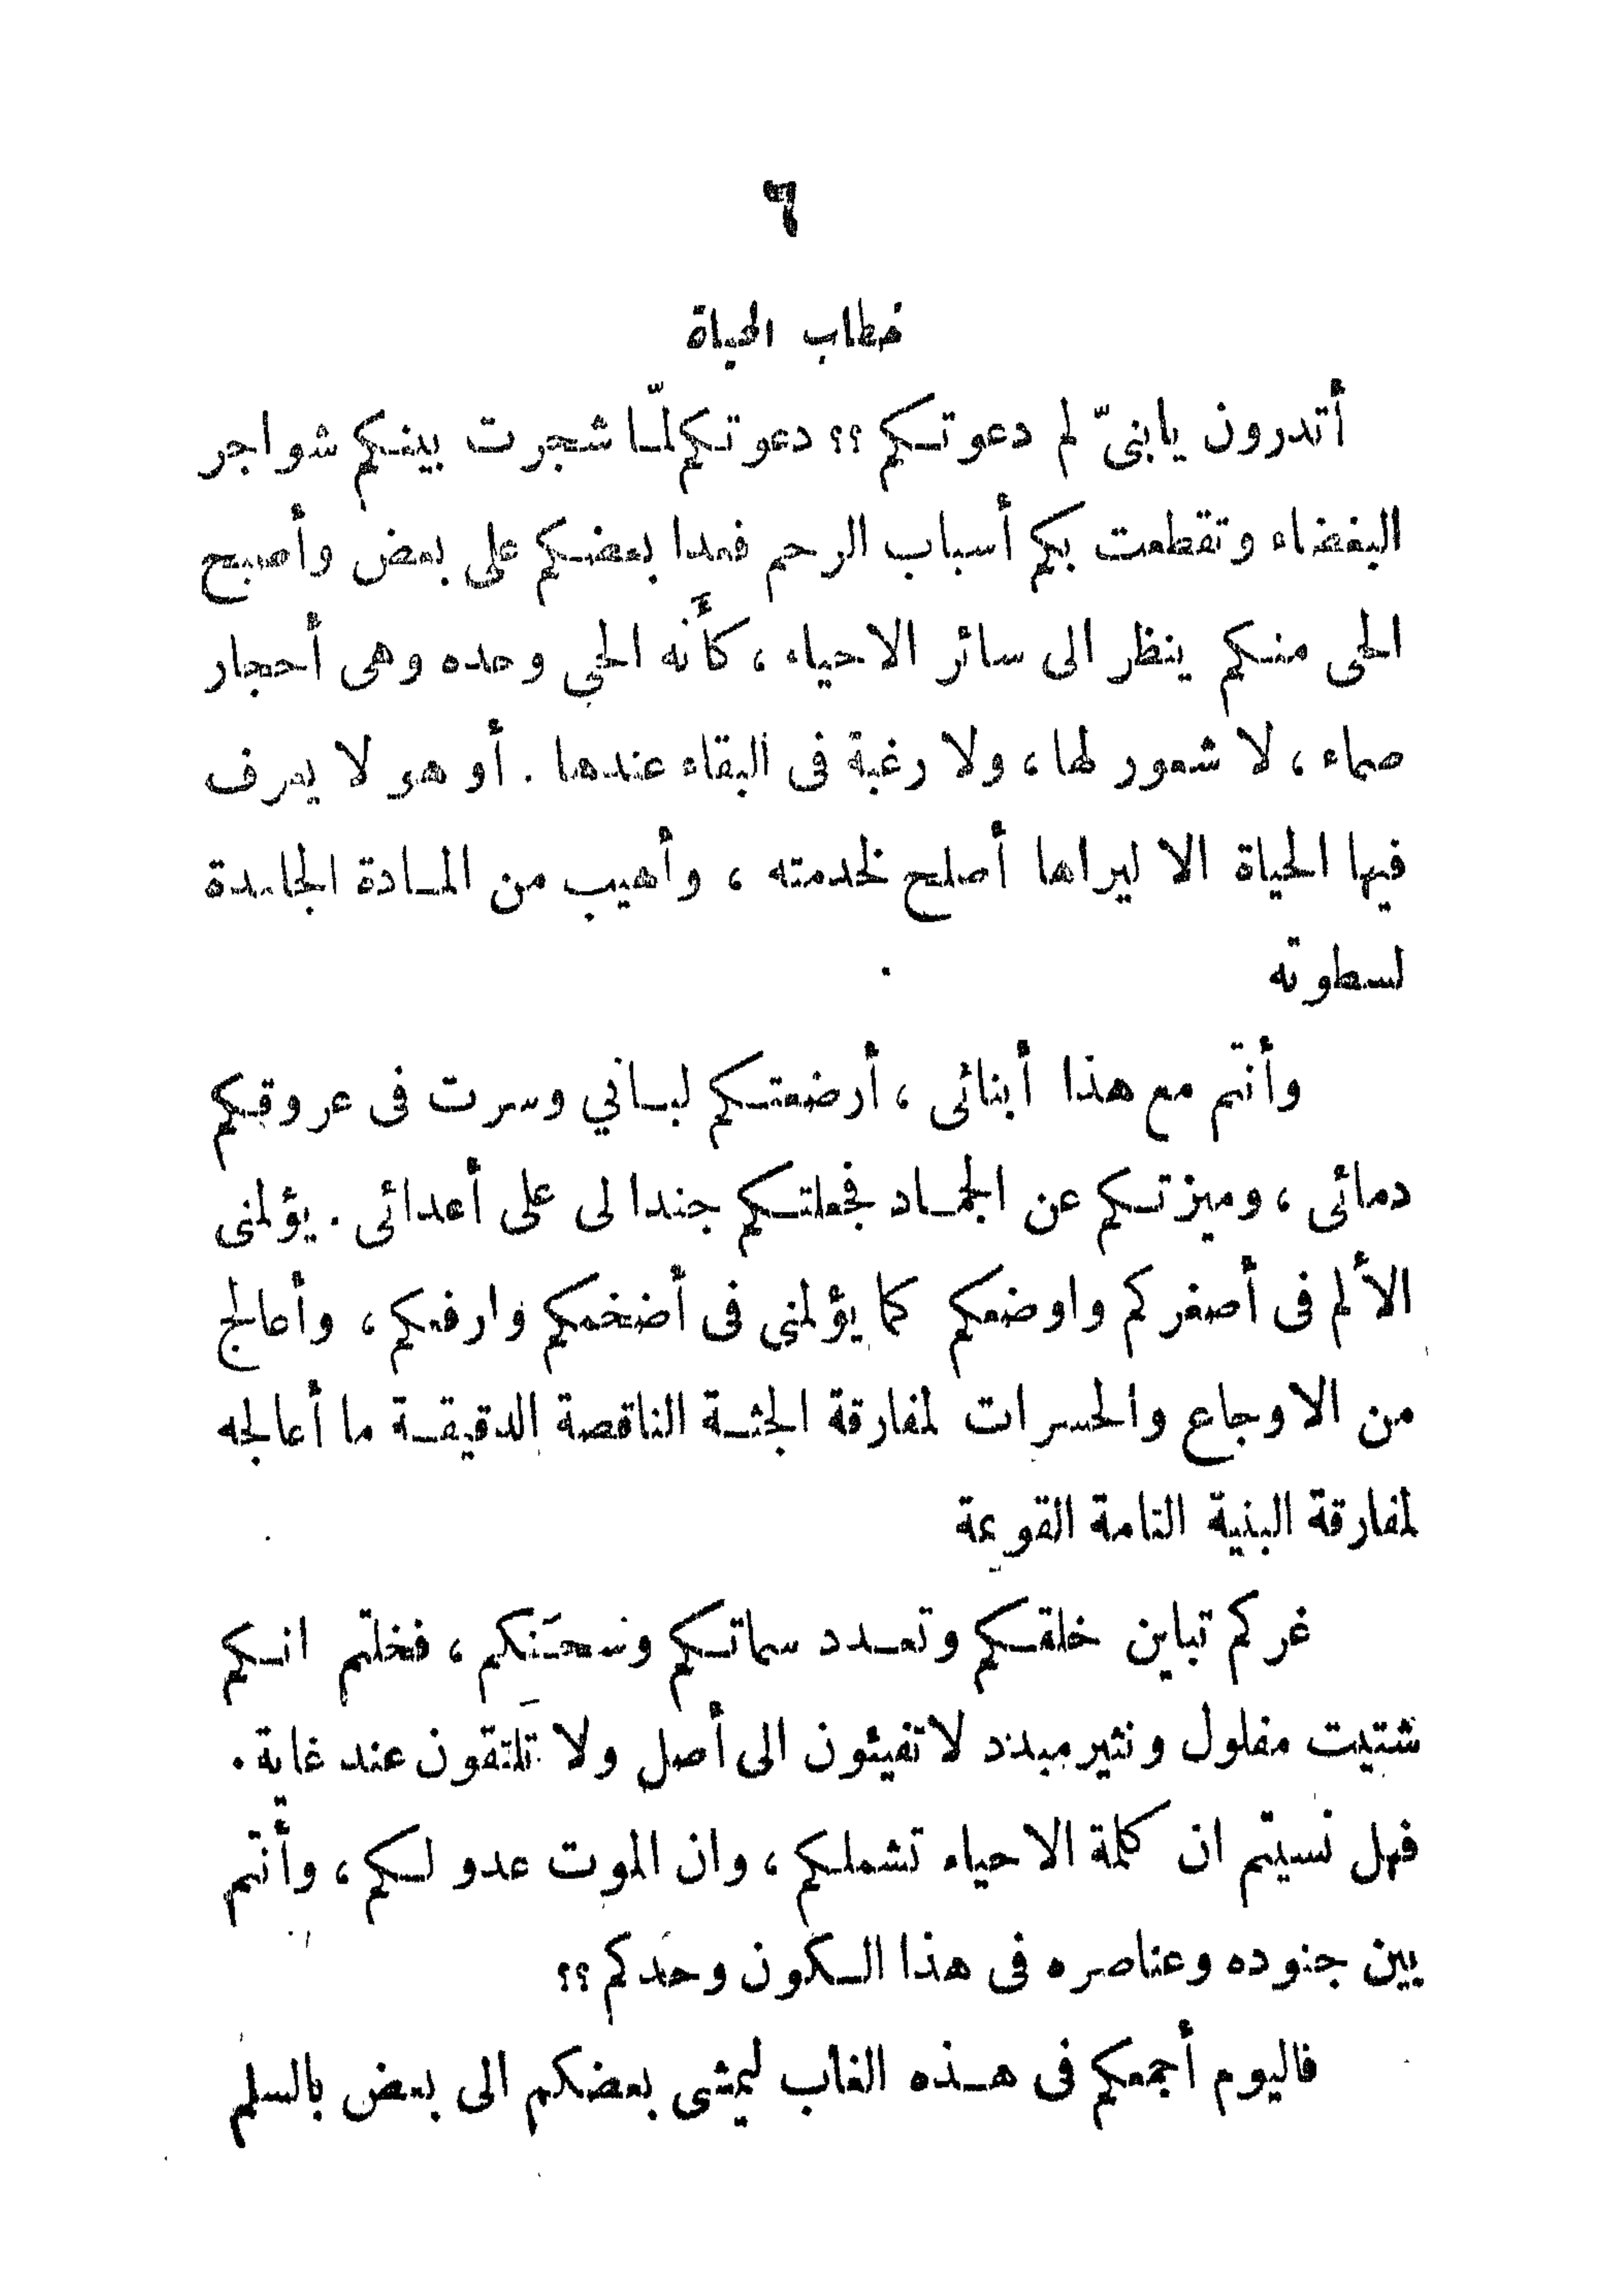 ٦
خطاب الحياة
أتدرون يابنىّ لم دعوتكم ؟؟ دعوتكم لمّا شجرت بينكم شواجر
البغضاء وتقطعت بكم أسباب الرحم فعدا بعضكم على بعض وأصبح
الحى منكم ينظر الى سائر الاحياء ، كأنه الحي وحده وهى أحجار
صماء ، لا شعور لها ، ولا رغبة فى البقاء عندها . أو هو لا يعرف
فيها الحياة الا ليراها أصلح لخدمته ، وأهيب من المادة الجامدة
لسطوته
وأنتم مع هذا أبنائى ، أرضعتكم لبانى وسرت فى عروقكم
دمائى ، وميزتكم عن الجماد فجعلتكم جندا لى على أعدائى . يؤلمنى
الألم فى أصغركم واوضعكم كما يؤلمنى فى أضخمكم وارفعكم ، وأعالج
من الاوجاع والحسرات لمفارقة الجثة الناقصة الدقيقة ما أعالجه
لمفارقة البنية التامة القويمة
غركم تباين خلقكم وتعدد سماتكم وسَحَنكم ، فخلتم انكم
شتيت مفلول ونثير مبدد لا تفيئون الى أصل ولا تلتقون عند غاية .
فهل نسيتم ان كلمة الاحياء تشملكم ، وان الموت عدو لكم ، وأنتم
بين جنوده وعناصره فى هذا الكون وحدكم ؟؟
فاليوم أجمعكم فى هذه الغاب ليمشى بعضكم الى بعض بالسلم